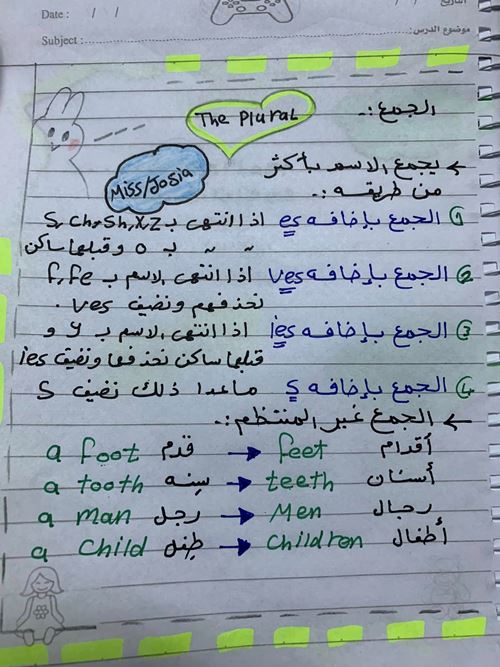 Date : / /
التاريخ / /
Subject :
موضوع الدرس:
The Plural
الجمع :.
Miss/Josia
← يجمع الاسم بأكثر
من طريقه :.
① الجمع بإضافه es اذا انتهى بـ S, ch, sh, x, z
〃 〃 بـ o وقبلها ساكن
② الجمع بإضافه ves اذا انتهى الاسم بـ f, fe
نحذفهم ونضيف ves .
③ الجمع بإضافه ies اذا انتهى الاسم بـ y و
قبلها ساكن نحذفها ونضيف ies
④ الجمع بإضافه s ماعدا ذلك نضيف S
← الجمع غير المنتظم :.
a foot قدم → feet أقدام
a tooth سنه → teeth أسنان
a man رجل → Men رجال
a child طفل → children أطفال